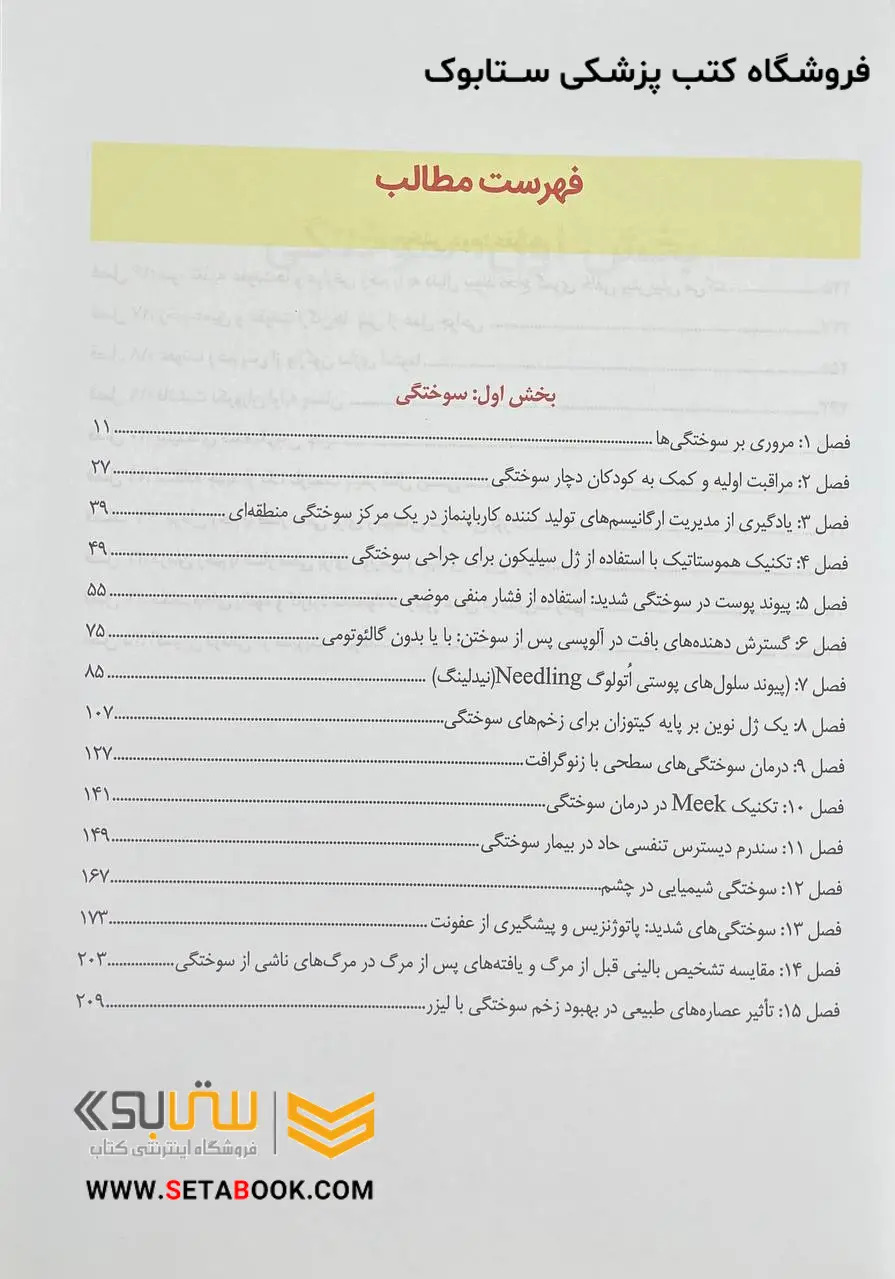 فروشگاه کتب پزشکی ستابوک
فهرست مطالب
بخش اول: سوختگی
فصل ۱: مروری بر سوختگی‌ها ........ ۱۱
فصل ۲: مراقبت اولیه و کمک به کودکان دچار سوختگی ........ ۲۷
فصل ۳: یادگیری از مدیریت ارگانیسم‌های تولید کننده کارباپنماز در یک مرکز سوختگی منطقه‌ای ........ ۳۹
فصل ۴: تکنیک هموستاتیک با استفاده از ژل سیلیکون برای جراحی سوختگی ........ ۴۹
فصل ۵: پیوند پوست در سوختگی شدید: استفاده از فشار منفی موضعی ........ ۵۵
فصل ۶: گسترش دهنده‌های بافت در آلوپسی پس از سوختن: با یا بدون گالئوتومی ........ ۷۵
فصل ۷: (پیوند سلول‌های پوستی اُتولوگ Needling(نیدلینگ) ........ ۸۵
فصل ۸: یک ژل نوین بر پایه کیتوزان برای زخم‌های سوختگی ........ ۱۰۷
فصل ۹: درمان سوختگی‌های سطحی با زنوگرافت ........ ۱۲۷
فصل ۱۰: تکنیک Meek در درمان سوختگی ........ ۱۴۱
فصل ۱۱: سندرم دیسترس تنفسی حاد در بیمار سوختگی ........ ۱۴۹
فصل ۱۲: سوختگی شیمیایی در چشم ........ ۱۶۷
فصل ۱۳: سوختگی‌های شدید: پاتوژنزیس و پیشگیری از عفونت ........ ۱۷۳
فصل ۱۴: مقایسه تشخیص بالینی قبل از مرگ و یافته‌های پس از مرگ در مرگ‌های ناشی از سوختگی ........ ۲۰۳
فصل ۱۵: تأثیر عصاره‌های طبیعی در بهبود زخم سوختگی با لیزر ........ ۲۰۹
ستابوک
فروشگاه اینترنتی کتاب
WWW.SETABOOK.COM